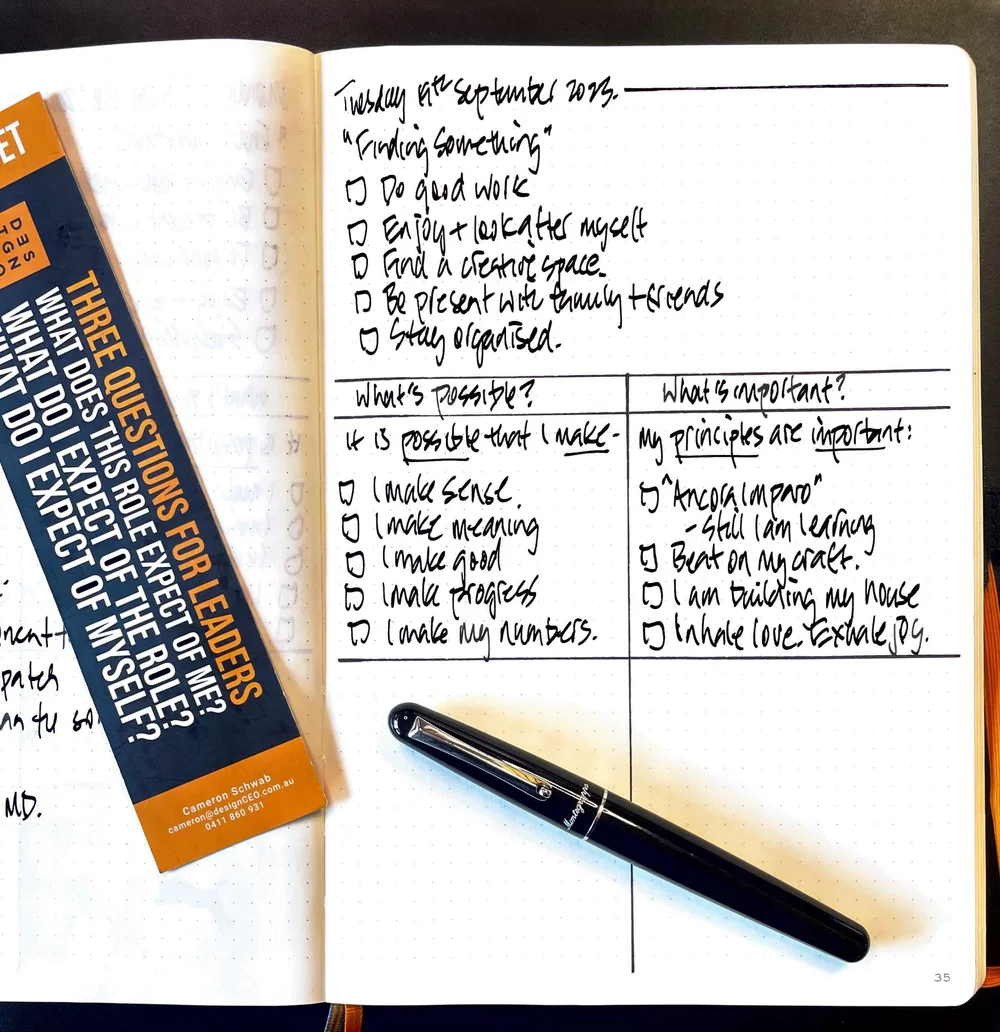 Tuesday 19th September 2023.
"Finding Something"
Do good work
Enjoy + look after myself
Find a creative space.
Be present with family + friends
Stay organised.
What's possible?
It is possible that I make -
I make sense.
I make meaning
I make good
I make progress
I make my numbers.
What's important?
My principles are important:
"Ancora Imparo"
- Still I am learning
Beat on my craft.
I am building my house
Inhale love. Exhale joy.
Montegrappa
35
ET
DES
IGNC
THREE QUESTIONS FOR LEADERS
WHAT DOES THIS ROLE EXPECT OF ME?
WHAT DO I EXPECT OF THE ROLE?
WHAT DO I EXPECT OF MYSELF?
Cameron Schwab
cameron@designCEO.com.au
0411 860 931
patch
MD.